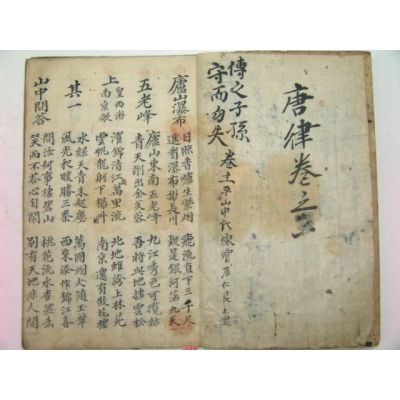 唐律卷之
傳之子孫
守而勿失
卷主平山申氏家寶
廬山瀑布
日照香爐生紫烟 飛流直下三千尺
遙看瀑布掛長川 疑是銀河落九天
五老峰
廬山東南五老峰 九江秀色可攬結
青天削出金芙蓉 吾將 地 雲松
上皇西巡南京歌
濯錦清江萬里流 北地雖誇上林苑
雲帆龍舸下揚州 南京還有散花樓
其一
水綠天青不起塵 萬國烟火隨玉輦
風光和暖勝三秦 西來添作錦江春
山中問答
問汝何事棲碧山 桃花流水杳然去
笑而不答心自閑 別有天地非人間